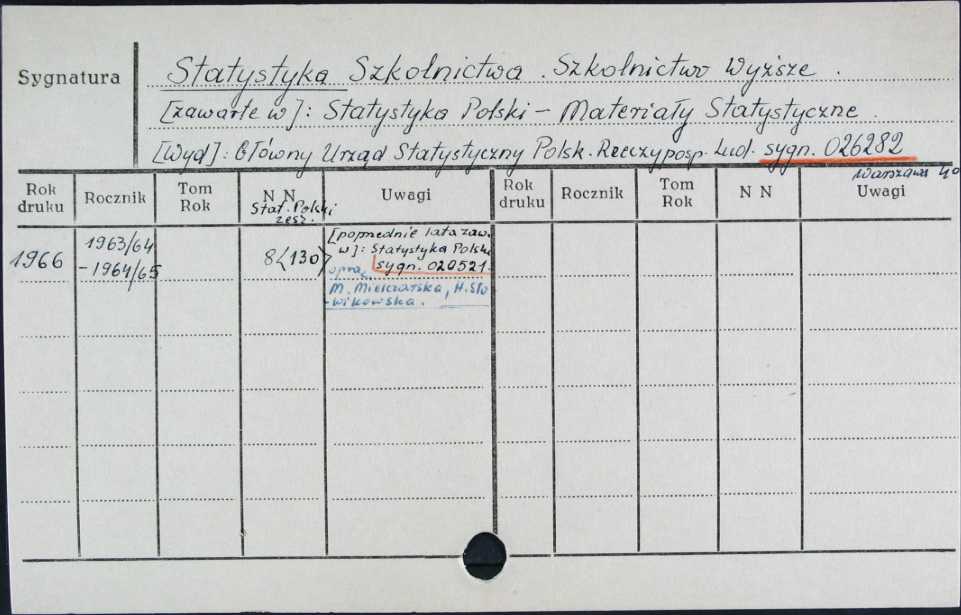 Sygnatura
Statystyka Szkolnictwa. Szkolnictwo Wyższe.
[zawarte w]: Statystyka Polski – Materiały Statystyczne.
[Wyd]: Główny Urząd Statystyczny Polsk. Rzeczyposp. Lud. sygn. 026282
Warszawa 4º
Rok druku Rocznik Tom Rok N N Uwagi Rok druku Rocznik Tom Rok N N Uwagi
Stat. Polski
zesz.
1966 1963/64 8(130) [poprzednie lata zaw.
-1964/65 w]: Statystyka Polski
sygn. 020521.
oprac.
M. Mieczarska, H. Sło-
wikowska.